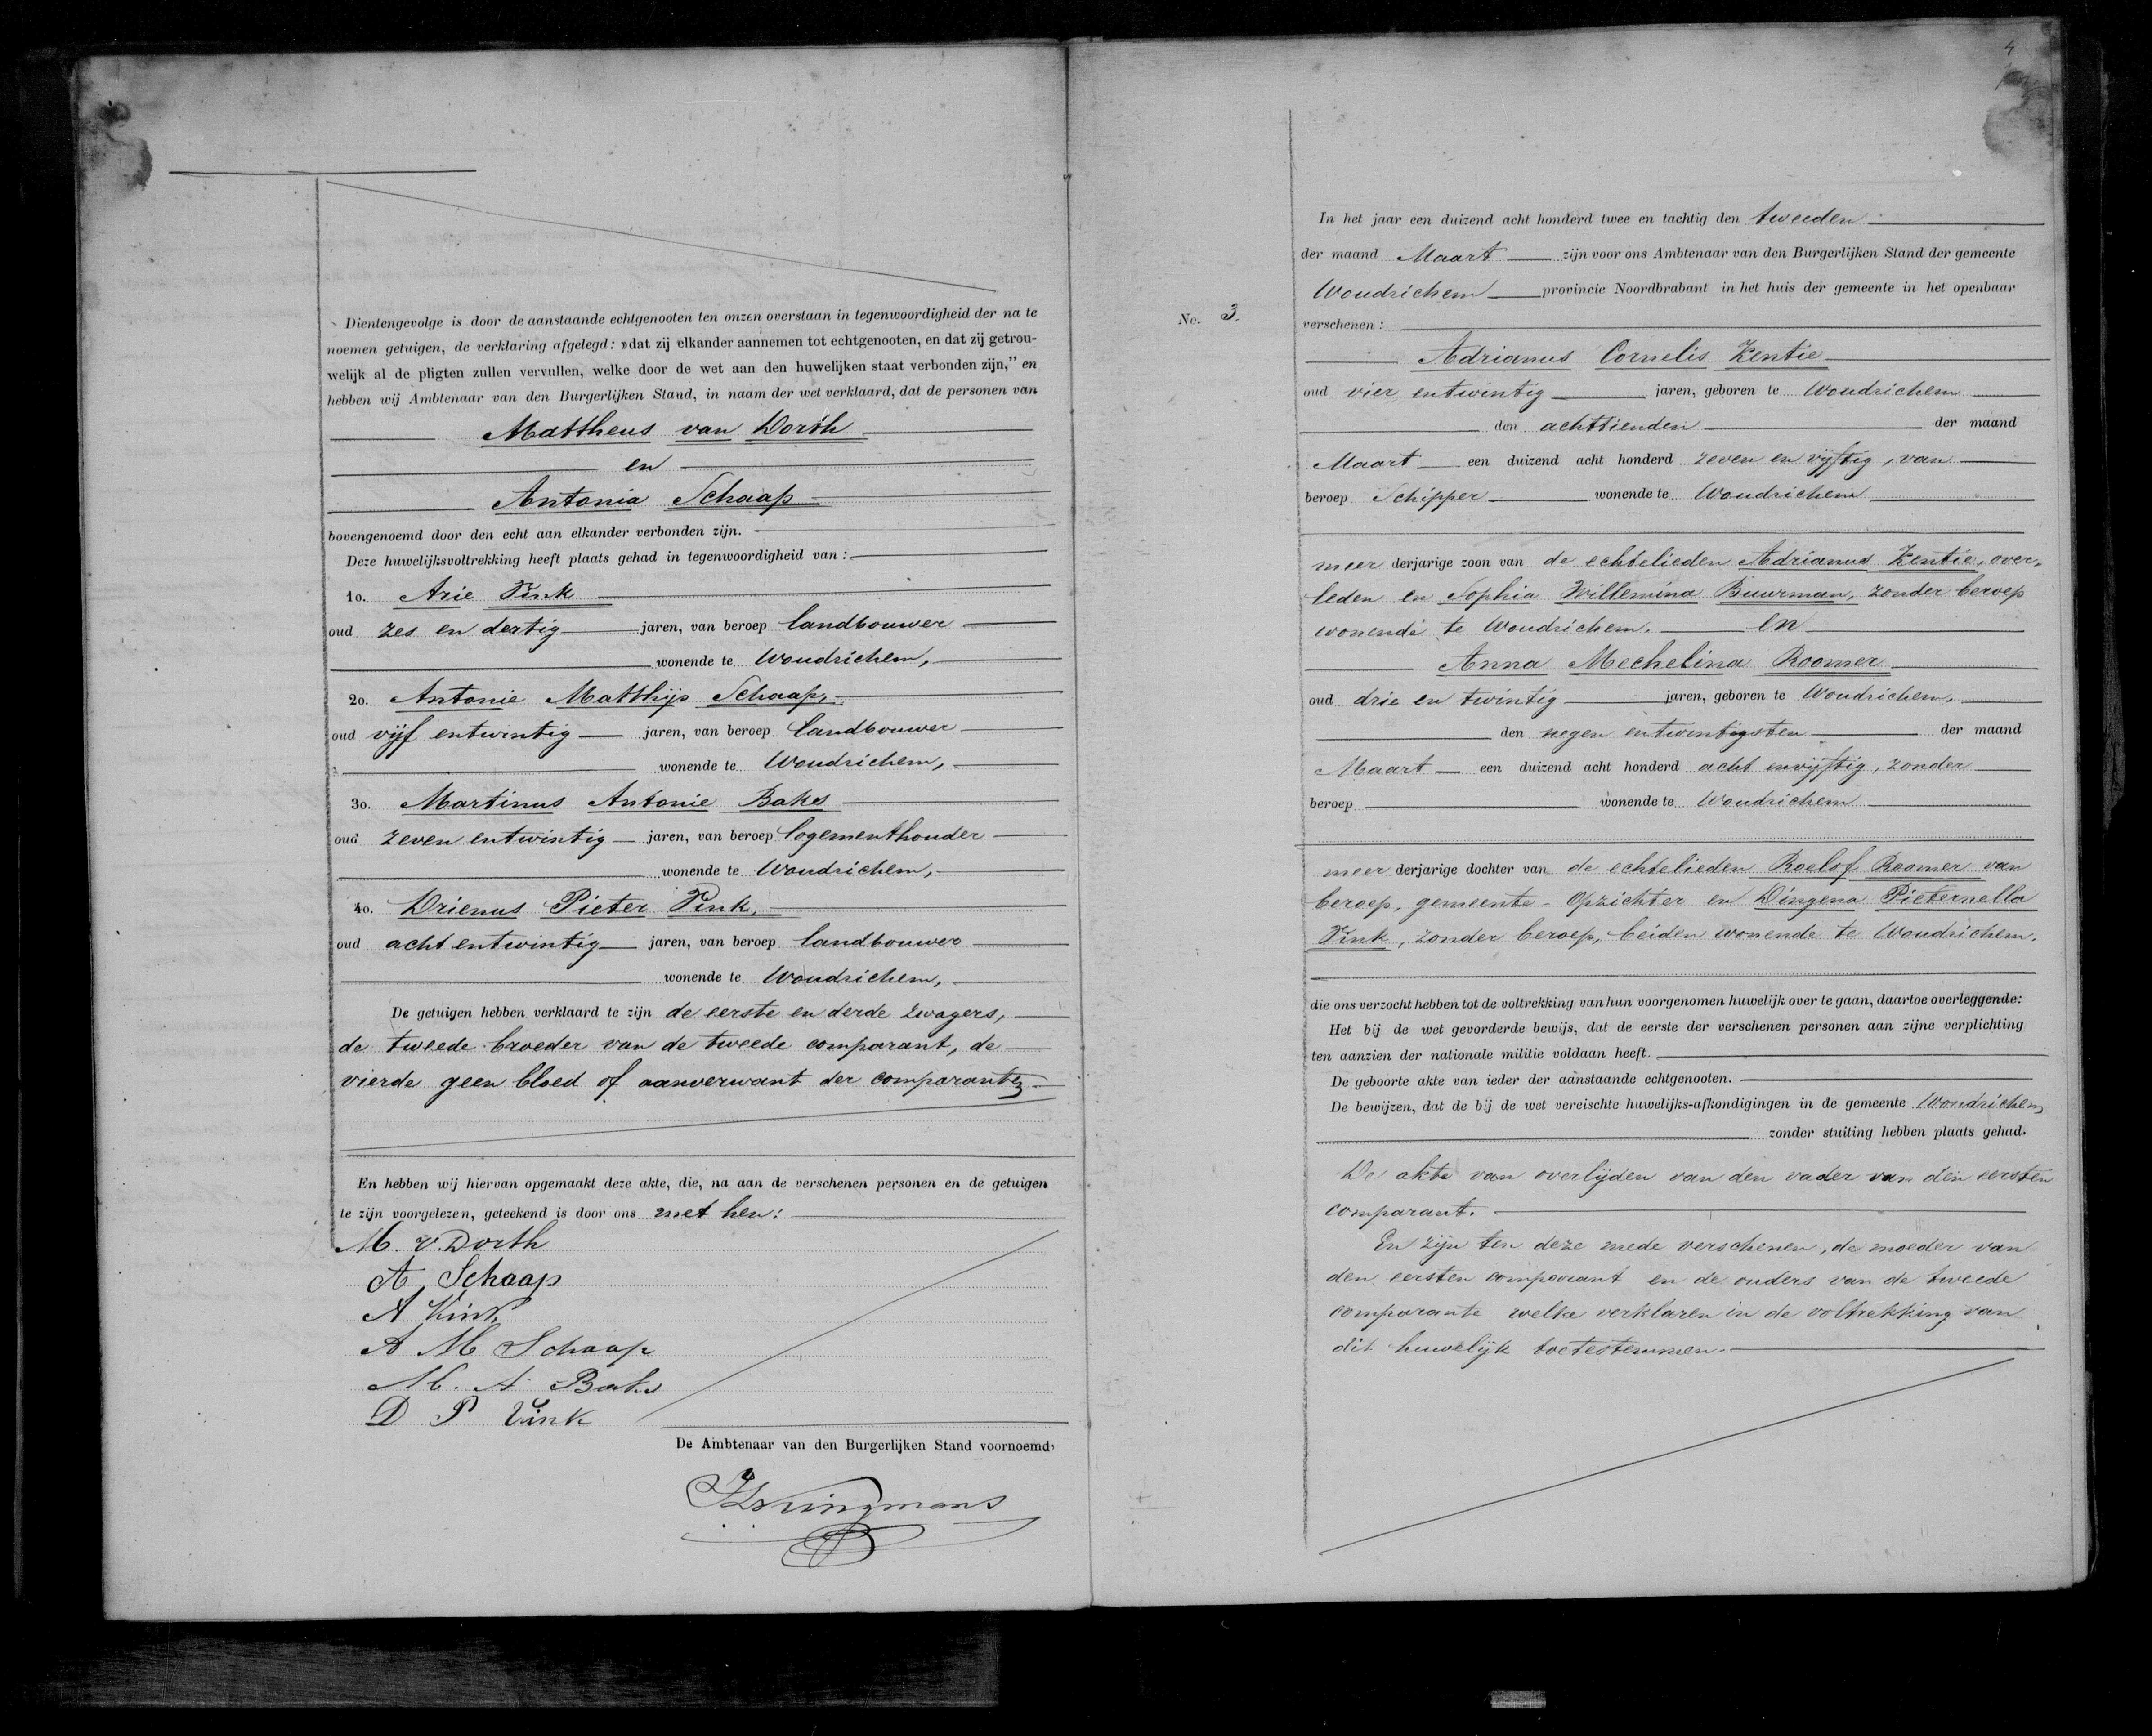 Dientengevolge is door de aanstaande echtgenooten ten onzen overstaan in tegenwoordigheid der na te
noemen getuigen, de verklaring afgelegd: »dat zij elkander aannemen tot echtgenooten, en dat zij getrou-
welijk al de pligten zullen vervullen, welke door de wet aan den huwelijken staat verbonden zijn,” en
hebben wij Ambtenaar van den Burgerlijken Stand, in naam der wet verklaard, dat de personen van
Mattheus van Dorth
en
Antonia Schaap
bovengenoemd door den echt aan elkander verbonden zijn.
Deze huwelijksvoltrekking heeft plaats gehad in tegenwoordigheid van:
1o. Arie Vink
oud zes en dertig jaren, van beroep landbouwer
wonende te Woudrichem,
2o. Antonie Matthijs Schaap,
oud vijf entwintig jaren, van beroep landbouwer
wonende te Woudrichem,
3o. Martinus Antonie Bakes
oud zeven entwintig jaren, van beroep logementhouder
wonende te Woudrichem,
4o. Drienus Pieter Vink,
oud acht entwintig jaren, van beroep landbouwer
wonende te Woudrichem,
De getuigen hebben verklaard te zijn de eerste en derde zwagers,
de tweede broeder van de tweede comparant, de
vierde geen bloed of aanverwant der comparanten
En hebben wij hiervan opgemaakt deze akte, die, na aan de verschenen personen en de getuigen
te zijn voorgelezen, geteekend is door ons met hen:
M. v. Dorth
A. Schaap
A Vink
A M Schaap
M. A Bakes
D P Vink
De Ambtenaar van den Burgerlijken Stand voornoemd,
4
No. 3.
In het jaar een duizend acht honderd twee en tachtig den tweeden
der maand Maart zijn voor ons Ambtenaar van den Burgerlijken Stand der gemeente
Woudrichem provincie Noordbrabant in het huis der gemeente in het openbaar
verschenen:
Adrianus Cornelis Kentie
oud vier entwintig jaren, geboren te Woudrichem
den achttienden der maand
Maart een duizend acht honderd zeven en vijftig, van
beroep Schipper wonende te Woudrichem
meer derjarige zoon van de echtelieden Adrianus Kentie, over-
leden en Sophia Willemina Buurman, zonder beroep
wonende te Woudrichem. en
Anna Mechelina Roomer
oud drie en twintig jaren, geboren te Woudrichem,
den negen entwintigsten der maand
Maart een duizend acht honderd acht envijftig, zonder
beroep wonende te Woudrichem
meer derjarige dochter van de echtelieden Roelof Roomer van
beroep, gemeente-Opzichter en Dingena Pieternella
Vink, zonder beroep, beiden wonende te Woudrichem.
die ons verzocht hebben tot de voltrekking van hun voorgenomen huwelijk over te gaan, daartoe overleggende:
Het bij de wet gevorderde bewijs, dat de eerste der verschenen personen aan zijne verplichting
ten aanzien der nationale militie voldaan heeft.
De geboorte akte van ieder der aanstaande echtgenooten.
De bewijzen, dat de bij de wet vereischte huwelijks-afkondigingen in de gemeente Woudrichem
zonder stuiting hebben plaats gehad.
De akte van overlijden van den vader van den eersten
comparant.
En zijn ten deze mede verschenen, de moeder van
den eersten comparant en de ouders van de tweede
comparante welke verklaren in de voltrekking van
dit huwelijk toetestemmen.